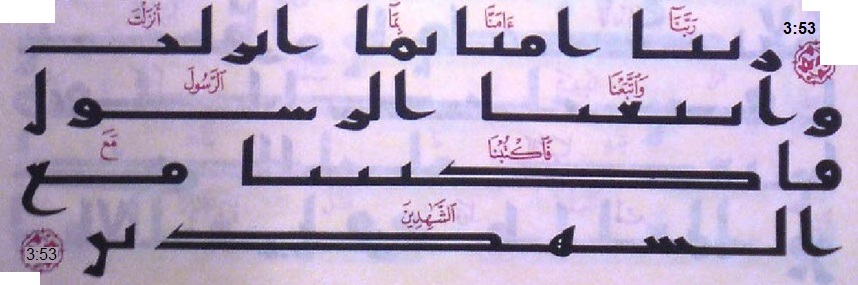 3:53
رَبَّنَآ ءَامَنَّا بِمَآ أَنزَلْتَ
ربنا امنا بما انزلت
وَٱتَّبَعْنَا ٱلرَّسُولَ
واتبعنا الرسول
فَٱكْتُبْنَا مَعَ
فاكتبنا مع
ٱلشَّٰهِدِينَ
الشهدين
3:53